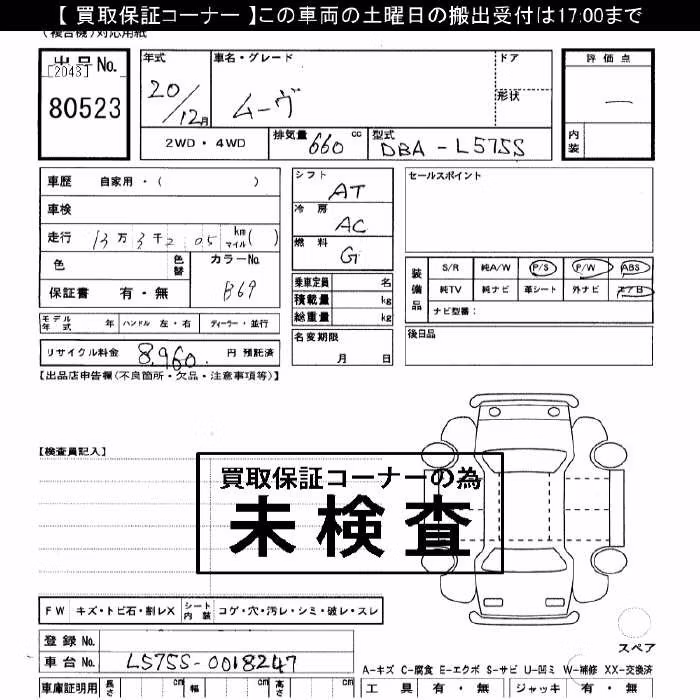 【 買取保証コーナー 】この車両の土曜日の搬出受付は17:00まで
(複合機)対応用紙
出品No. [2043] 80523
年式 20/12月
車名・グレード ムーヴ
ドア 形状
評価点 ―
内装
2WD・4WD 排気量 660 cc 型式 DBA-L575S
車歴 自家用・( )
車検
走行 13万3千2 05 km マイル ( )
色 色替 カラーNo. B69
保証書 有・無
モデル年式 年 ハンドル 左・右 ディーラー・並行
リサイクル料金 8,960 円 預託済
シフト AT
冷房 AC
燃料 G
乗車定員 名
積載量 kg
総重量 kg
名変期限 月 日
セールスポイント
装備品 S/R 純A/W P/S P/W ABS
純TV 純ナビ 革シート 外ナビ エアB
ナビ型番:
後日品
【出品店申告欄(不良箇所・欠品・注意事項等)】
【検査員記入】
買取保証コーナーの為
未検査
FW キズ・トビ石・割レX シート内装 コゲ・穴・汚レ・シミ・破レ・スレ
登録No.
車台No. L575S-0018247
車庫証明用 長さ cm 幅 cm 高さ cm
スペア
A-キズ C-腐食 E-エクボ S-サビ U-凹ミ W-補修 XX-交換済
工具 有・無 ジャッキ 有・無